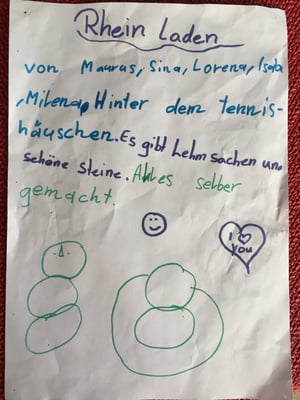 Rhein Laden
von Maurus, Sina, Lorena, Isela
, Milena, Hinter dem tennis-
häuschen. Es gibt Lehm sachen un
schöne steine. Alles selber
gemacht.
I ♡
you